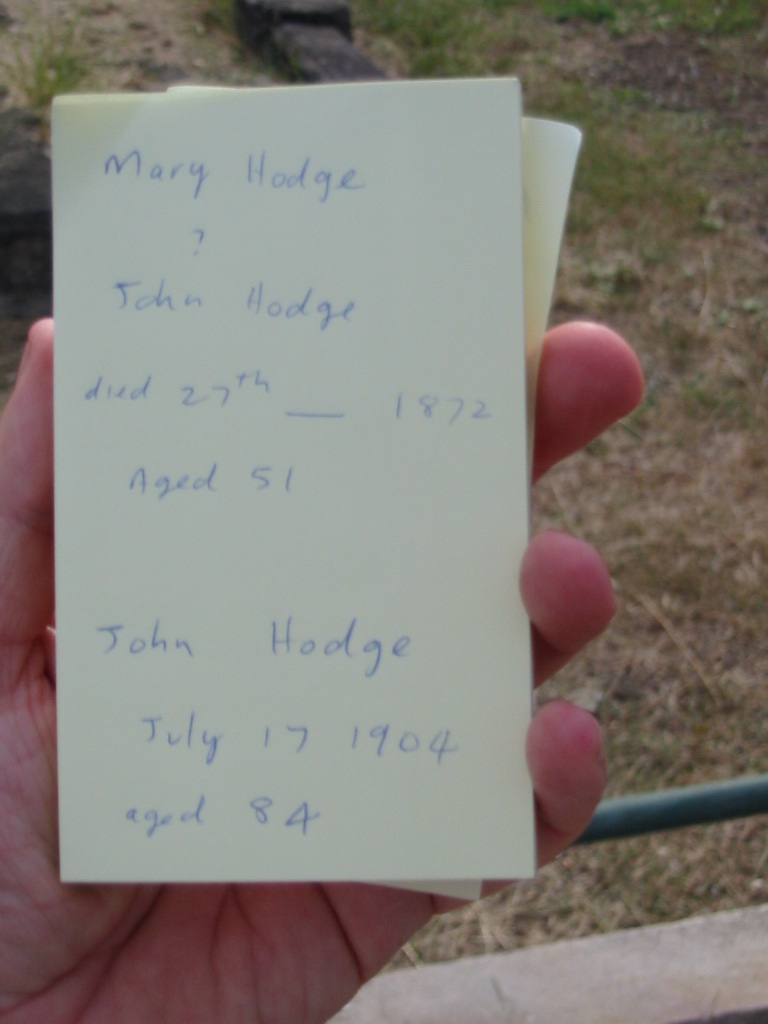 Mary Hodge
?
John Hodge
died 27th __ 1872
Aged 51
John Hodge
July 17 1904
aged 84